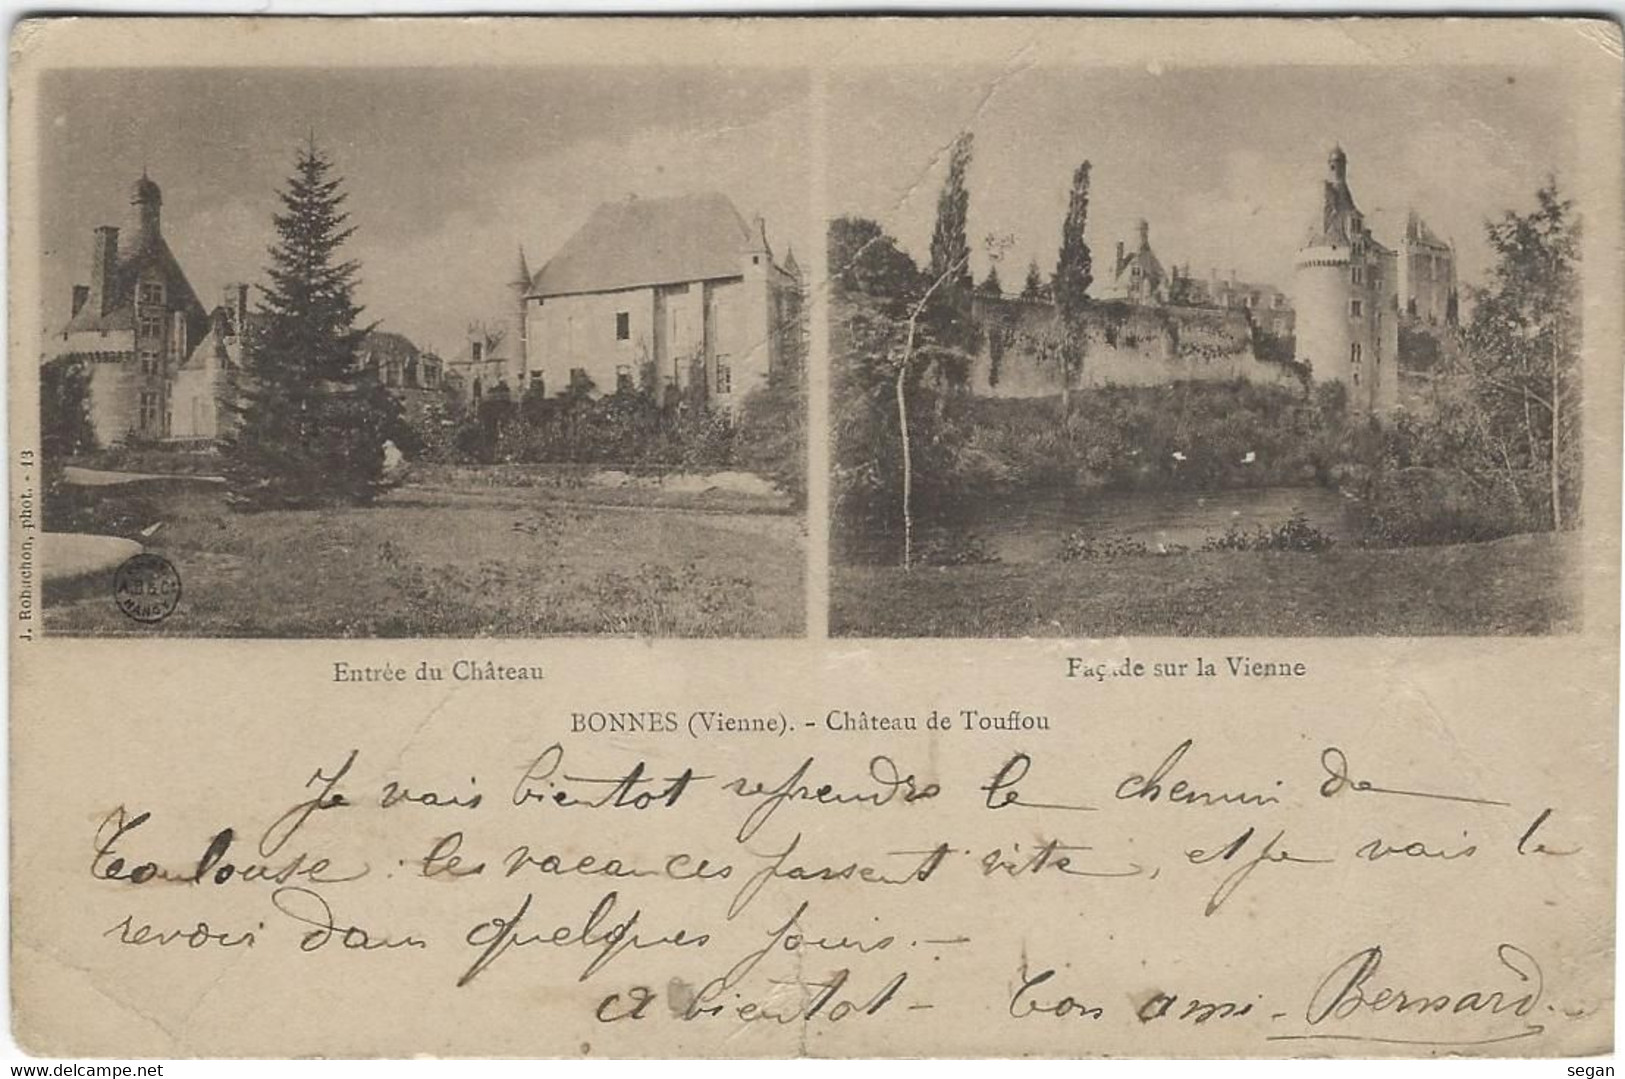 J. Robuchon, phot. - 13
A.B & Cie
NANCY
Entrée du Château
Façade sur la Vienne
BONNES (Vienne). - Château de Touffou
Je vais bientot reprendre le chemin de
Toulouse. les vacances passent vite, et je vais te
revoir dans quelques jours. -
A bientot - Ton ami - Bernard.
www.delcampe.net
segan